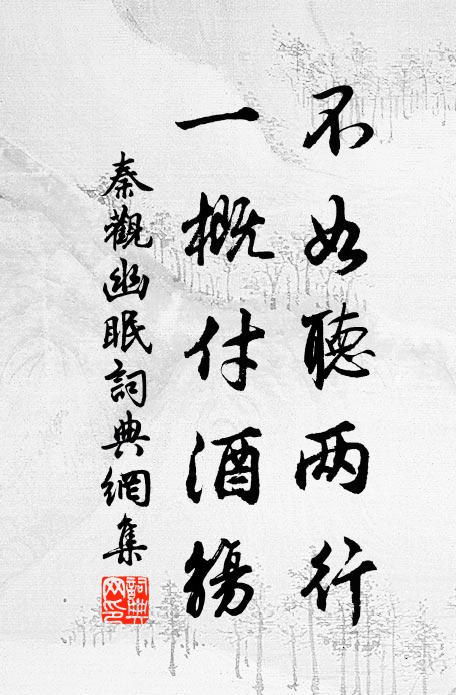 不如聽两行
一概付酒觴
秦觀幽眠詞典網集
詞典